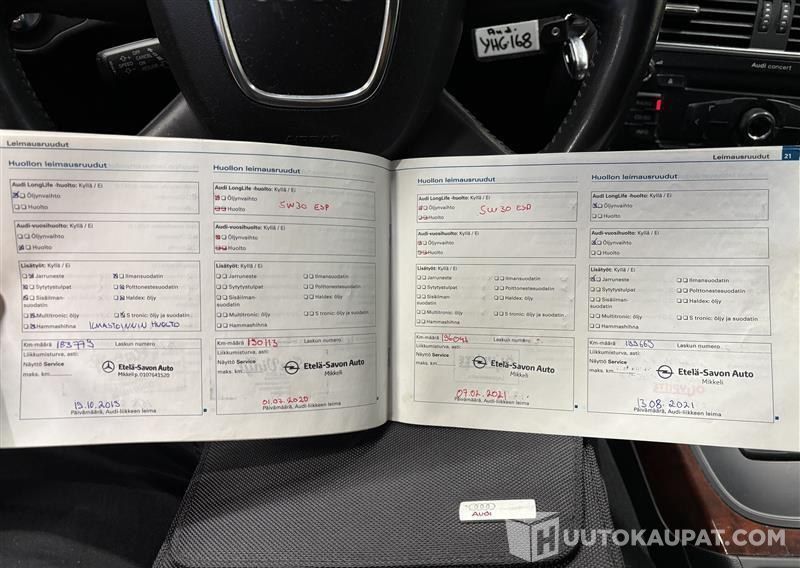 Audi
YHG168
Audi concert
CANCEL
SPEED
Leimausruudut
Huollon leimausruudut
Audi LongLife -huolto: Kyllä / Ei
Öljynvaihto
Huolto
Audi-vuosihuolto: Kyllä / Ei
Öljynvaihto
Huolto
Lisätyöt: Kyllä / Ei
Jarruneste
Ilmansuodatin
Sytytystulpat
Polttonestesuodatin
Sisäilman-
suodatin
Haldex: öljy
Multitronic: öljy
S tronic: öljy ja suodatin
Hammashihna
ILMASTOINNIN HUOLTO
Km-määrä 183775
Laskun numero
Liikkumisturva, asti:
Näyttö Service
maks. km
Etelä-Savon Auto
Mikkeli p. 0107641520
15.10.2019
Päivämäärä, Audi-liikkeen leima
Huollon leimausruudut
Audi LongLife -huolto: Kyllä / Ei
Öljynvaihto
Huolto
5W30 ESP
Audi-vuosihuolto: Kyllä / Ei
Öljynvaihto
Huolto
Lisätyöt: Kyllä / Ei
Jarruneste
Ilmansuodatin
Sytytystulpat
Polttonestesuodatin
Sisäilman-
suodatin
Haldex: öljy
Multitronic: öljy
S tronic: öljy ja suodatin
Hammashihna
Km-määrä 190113
Laskun numero
Liikkumisturva, asti:
Näyttö Service
maks. km
Etelä-Savon Auto
Mikkeli
01.07.2020
Päivämäärä, Audi-liikkeen leima
Leimausruudut 21
Huollon leimausruudut
Audi LongLife -huolto: Kyllä / Ei
Öljynvaihto
Huolto
5W30 ESP
Audi-vuosihuolto: Kyllä / Ei
Öljynvaihto
Huolto
Lisätyöt: Kyllä / Ei
Jarruneste
Ilmansuodatin
Sytytystulpat
Polttonestesuodatin
Sisäilman-
suodatin
Haldex: öljy
Multitronic: öljy
S tronic: öljy ja suodatin
Hammashihna
Km-määrä 196041
Laskun numero
Liikkumisturva, asti:
Näyttö Service
maks. km
Etelä-Savon Auto
Mikkeli
07.02.2021
Päivämäärä, Audi-liikkeen leima
Huollon leimausruudut
Audi LongLife -huolto: Kyllä / Ei
Öljynvaihto
Huolto
Audi-vuosihuolto: Kyllä / Ei
Öljynvaihto
Huolto
Lisätyöt: Kyllä / Ei
Jarruneste
Ilmansuodatin
Sytytystulpat
Polttonestesuodatin
Sisäilman-
suodatin
Haldex: öljy
Multitronic: öljy
S tronic: öljy ja suodatin
Hammashihna
Km-määrä
Laskun numero
Liikkumisturva, asti:
Näyttö Service
maks. km
Etelä-Savon Auto
Mikkeli
13.08.2021
Päivämäärä, Audi-liikkeen leima
Audi
HUUTOKAUPAT.COM